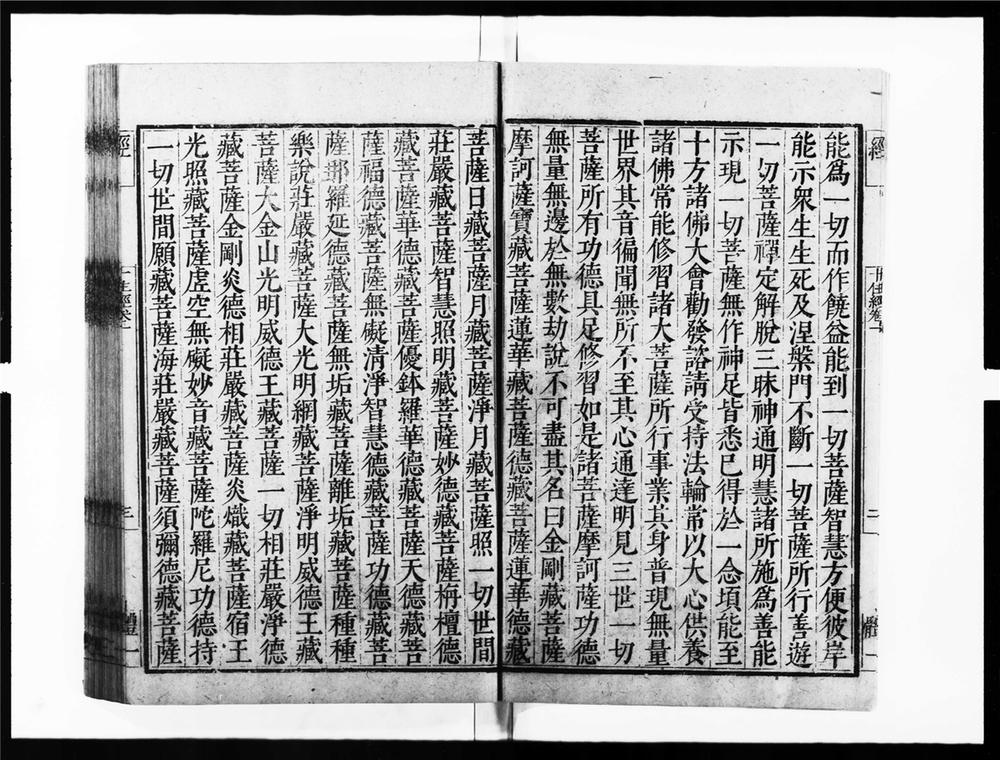 能爲一切而作饒益能到一切菩薩智慧方便彼岸
能示衆生生死及涅槃門不斷一切菩薩所行善遊
一切菩薩禪定解脫三昧神通明慧諸所施爲善能
示現一切菩薩無作神足皆悉已得於一念頃能至
十方諸佛大會勸發諮請受持法輪常以大心供養
諸佛常能修習諸大菩薩所行事業其身普現無量
世界其音徧聞無所不至其心通達明見三世一切
菩薩所有功德具足修習如是諸菩薩摩訶薩功德
無量無邊於無數劫說不可盡其名曰金剛藏菩薩
摩訶薩寶藏菩薩蓮華藏菩薩德藏菩薩蓮華德藏
菩薩日藏菩薩月藏菩薩淨月藏菩薩照一切世間
莊嚴藏菩薩智慧照明藏菩薩妙德藏菩薩栴檀德
藏菩薩華德藏菩薩優鉢羅華德藏菩薩天德藏菩
薩福德藏菩薩無礙清淨智慧德藏菩薩功德藏菩
薩那羅延德藏菩薩無垢藏菩薩離垢藏菩薩種種
樂說莊嚴藏菩薩大光明網藏菩薩淨明威德王藏
菩薩大金山光明威德王藏菩薩一切相莊嚴淨德
藏菩薩金剛炎德相莊嚴藏菩薩炎熾藏菩薩宿王
光照藏菩薩虛空無礙妙音藏菩薩陀羅尼功德持
一切世間願藏菩薩海莊嚴藏菩薩須彌德藏菩薩
經
三
體一